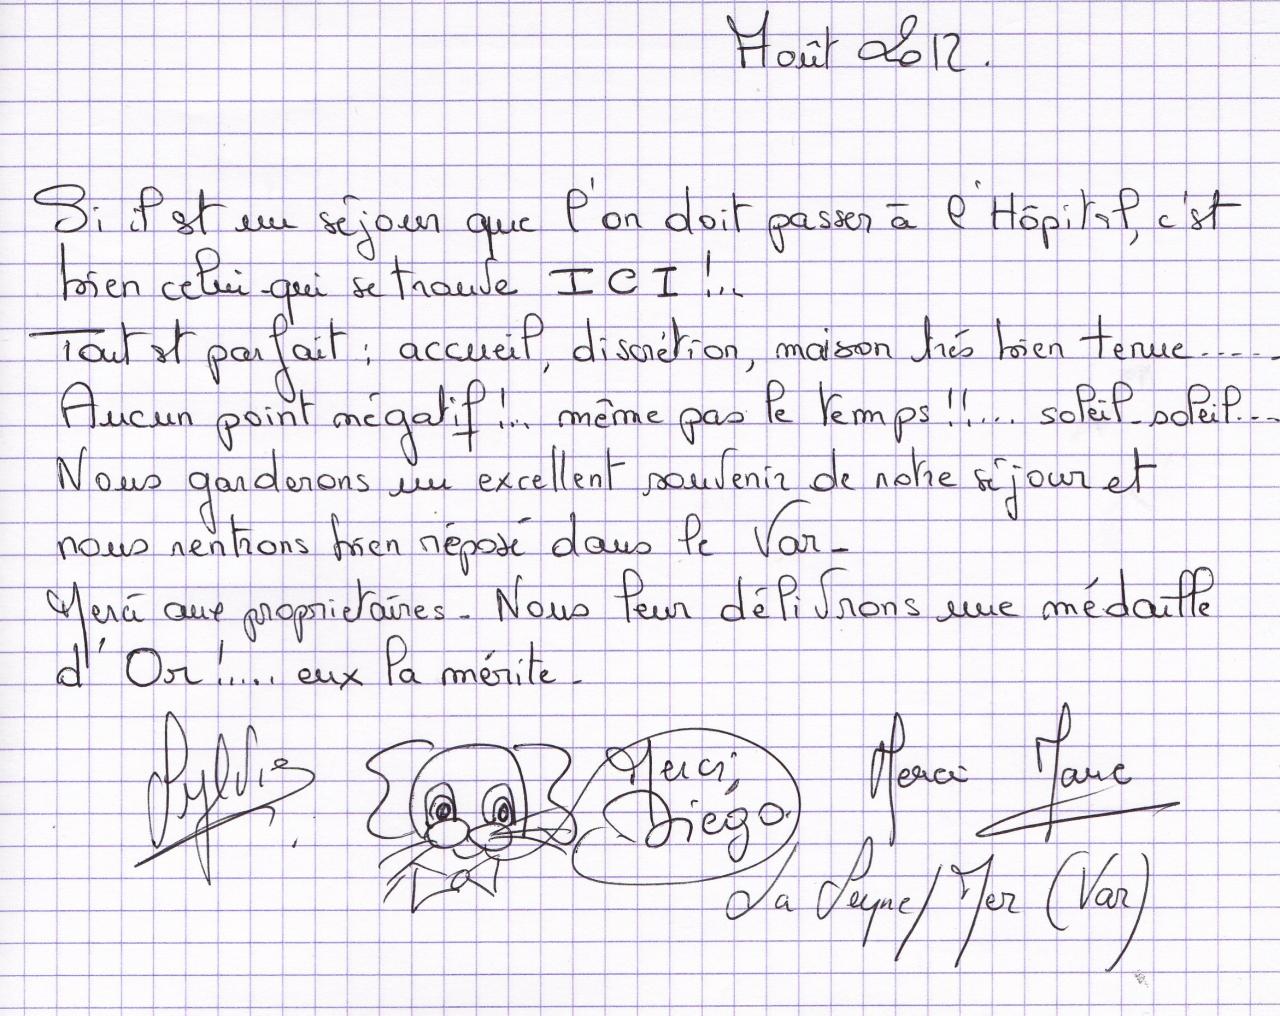 Août 2012.
Si il est un séjour que l'on doit passer à l'Hôpital, c'est
bien celui qui se trouve ICI !..
Tout est parfait : accueil, discrétion, maison très bien tenue.....
Aucun point négatif !.. même pas le temps !!.... soleil-soleil...
Nous garderons un excellent souvenir de notre séjour et
nous rentrons bien réposé dans le Var-
Merci aux proprietaires - Nous leur délivrons une médaille
d'Or !..... eux la mérite -
Sylvie
Merci,
Diégo.
Merci Marc
La Seyne/Mer (Var)